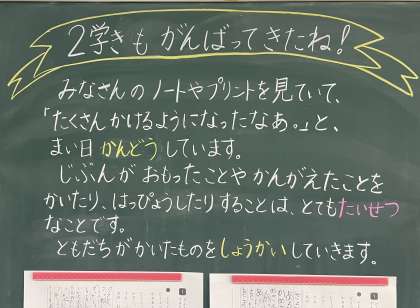 2学きも がんばってきたね!
みなさんの ノートやプリントを見ていて、
「たくさんかけるようになったなあ。」と、
まい日 かんどう しています。
じぶんが おもったことや かんがえたことを
かいたり、はっぴょうしたり することは、とても たいせつ
なことです。
ともだちが かいたものを しょうかい していきます。